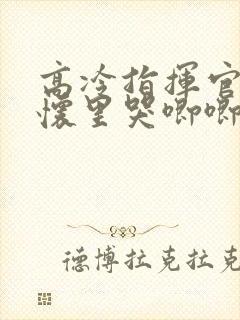 高冷指揮官
懷里哭唧唧
德博拉克拉克